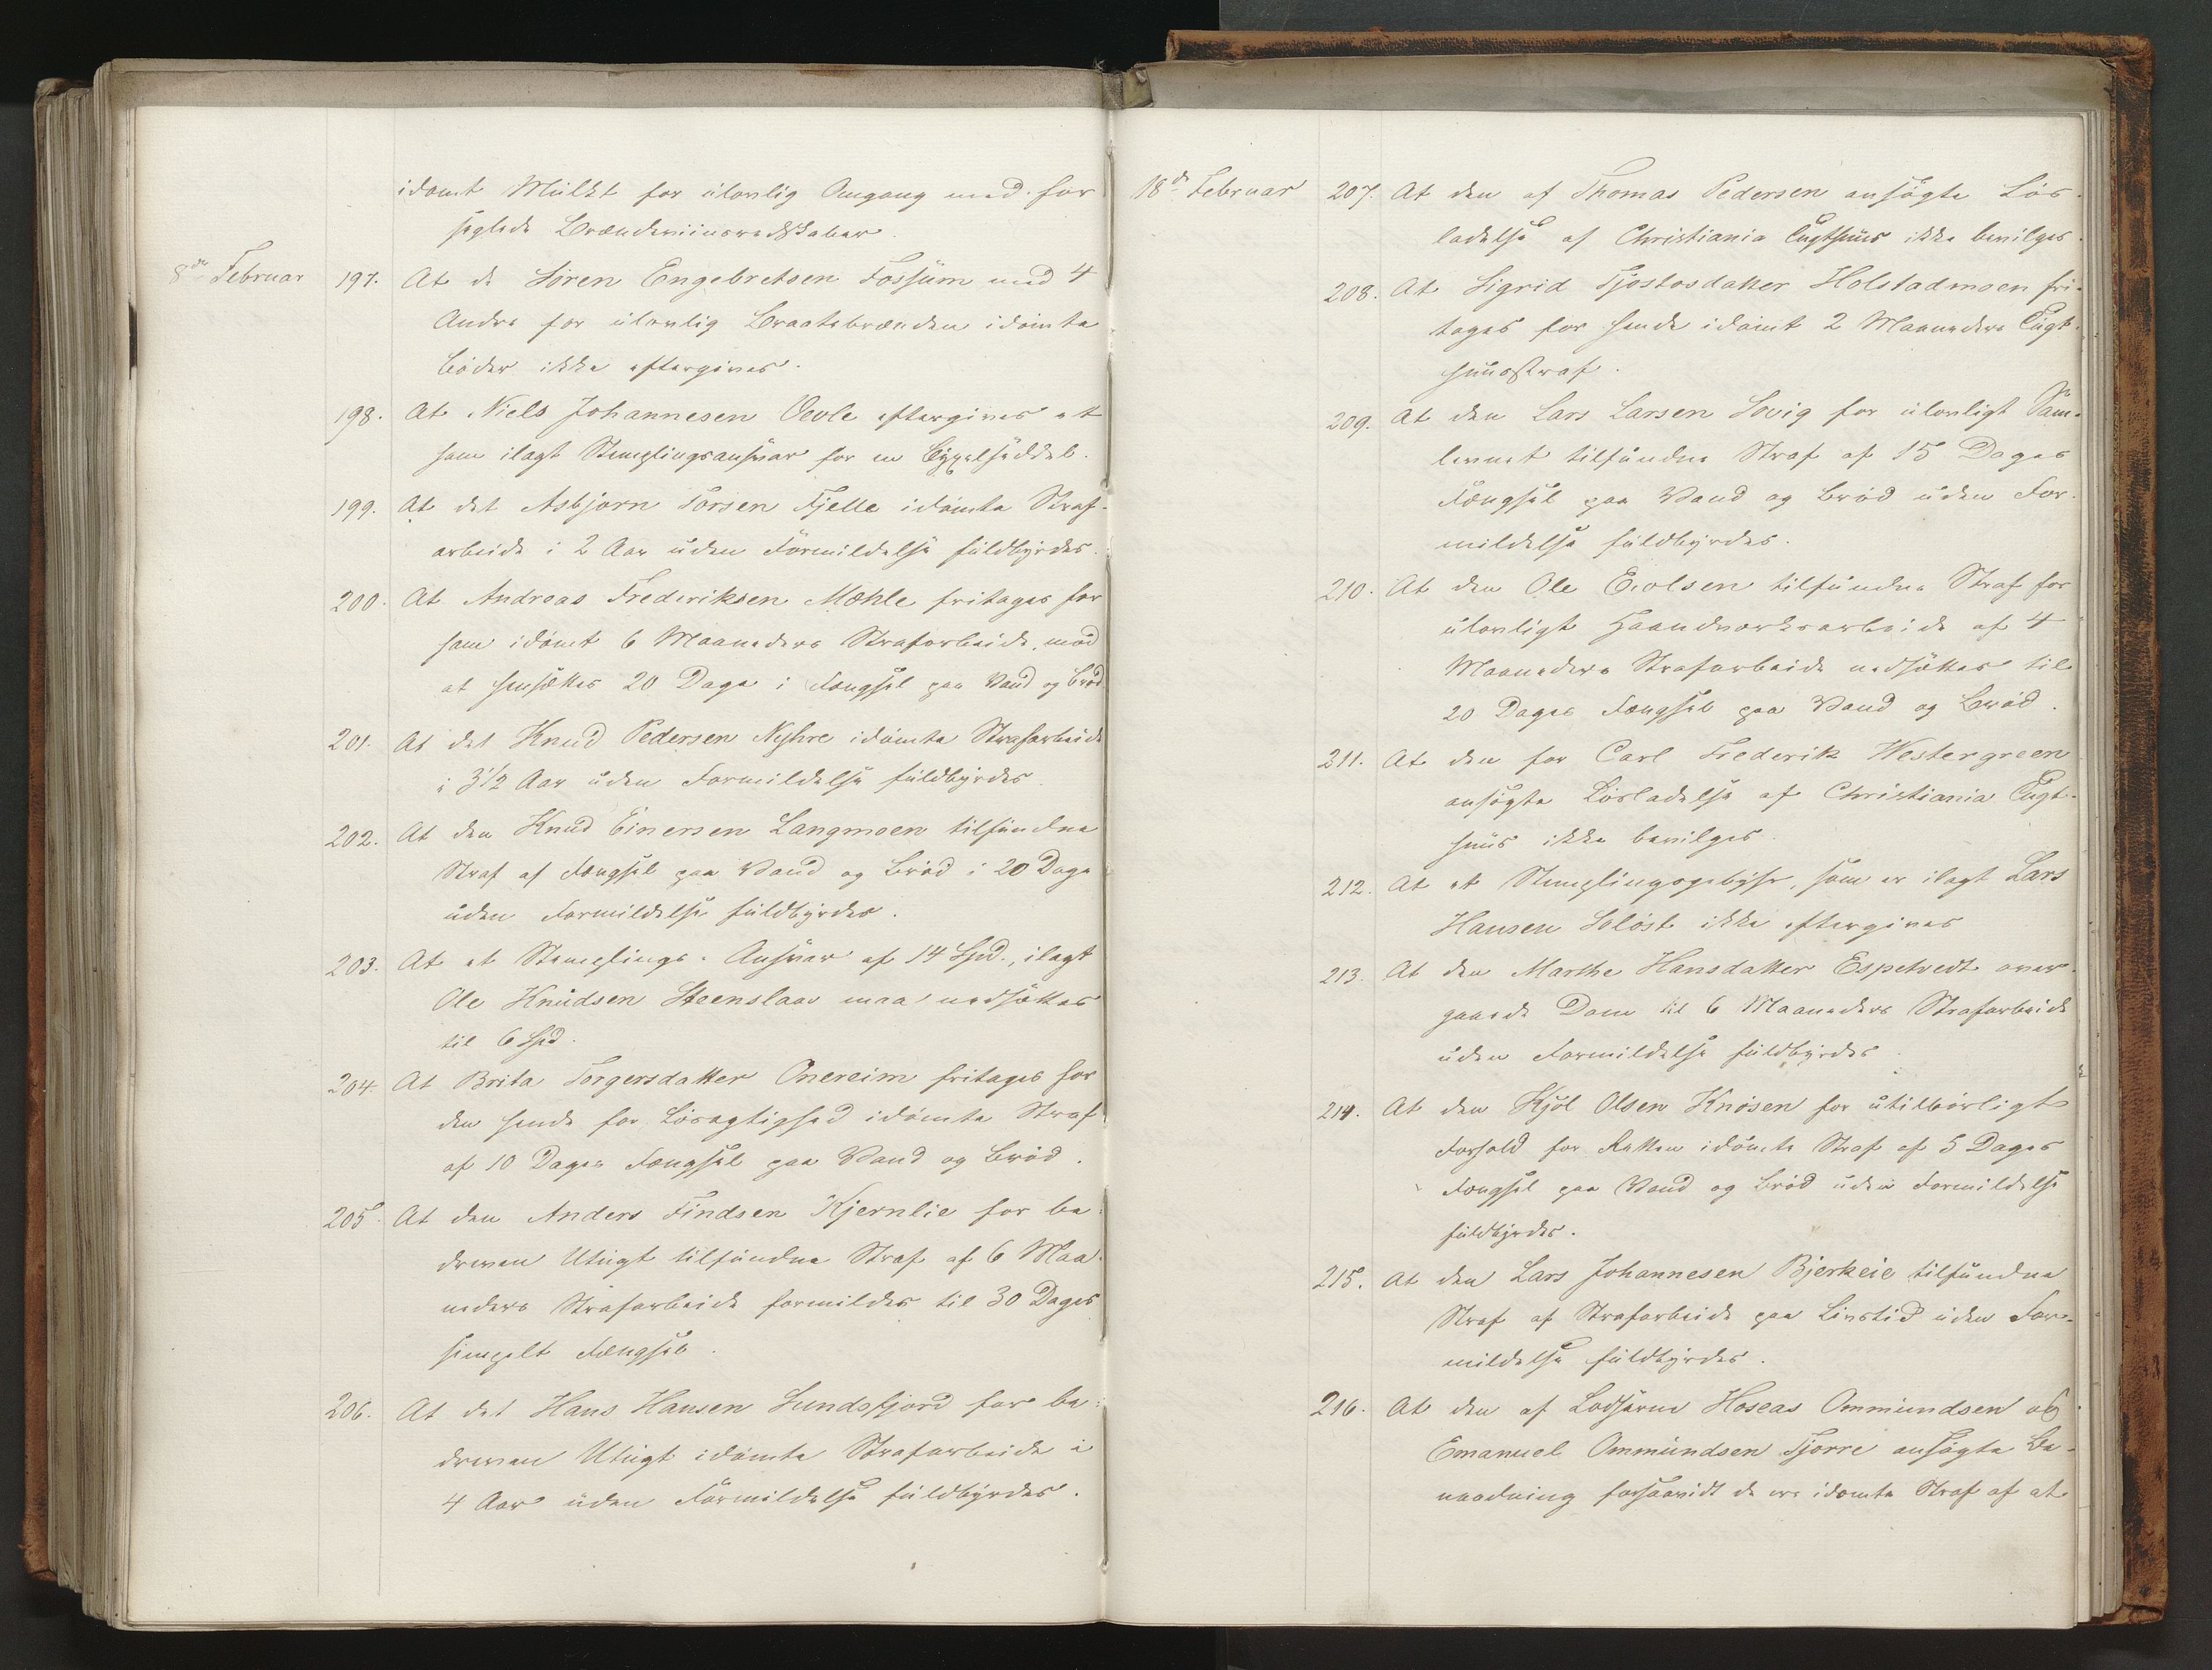 idömt Mulkt for ulovlig Omgang med for-
seglede Brændeviinsredskaber.
8de Februar 197. At de Sören Engebretsen Fossum med 4
Andre for ulovlig Braatebrænden idömte
Böder ikke eftergives.
198. At Niels Johannesen eftergives et
ham ilagt Stemplingsansvar for en Bygselseddel.
199. At det Asbjörn Torsen Fjelle idömte Straf-
arbeide i 2 Aar uden Formildelse fuldbyrdes.
200. At Andreas Frederiksen Mæhle fritages for
ham idömt 6 Maaneders Strafarbeide, mod
at hensættes 20 Dage i Fængsel paa Vand og Bröd
201. At det Knud Pedersen Nyhre idömte Strafarbeide
i 3 1/2 Aar uden Formildelse fuldbyrdes.
202. At den Knud Einersen Langmoen tilfundne
Straf af Fængsel paa Vand og Bröd i 20 Dage
uden Formildelse fuldbyrdes.
203. At et Stemplings-Ansvar af 14 Spd., ilagt
Ole Knudsen Steenslaas maa nedsættes
til 6 Spd.
204. At Brita Torgersdatter Onereim fritages for
den hende for Lösagtighed idömte Straf
af 10 Dages Fængsel paa Vand og Bröd.
205. At den Anders Findsen Kjernlie for be-
dreven Utugt tilfundne Straf af 6 Maa-
neders Strafarbeide formildes til 30 Dages
simpelt Fængsel.
206. At det Hans Hansen Sundsfjord for be-
dreven Utugt idömte Strafarbeide i
4 Aar uden Formildelse fuldbyrdes.
18de Februar 207. At den af Thomas Pedersen ansögte Lös-
ladelse af Christiania Tugthuus ikke bevilges.
208. At Sigrid Tjöstosdatter Holstadmoen fri-
tages for hende idömt 2 Maaneders Tugt-
huusstraf.
209. At den Lars Larsen Sovig for ulovligt Sam-
levnet tilfundne Straf af 15 Dages
Fængsel paa Vand og Bröd uden For-
mildelse fuldbyrdes.
210. At den Ole Erolsen tilfundne Straf for
ulovligt Haandværksarbeide af 4
Maaneders Strafarbeide nedsættes til
20 Dages Fængsel paa Vand og Bröd.
211. At den for Carl Frederik Westergreen
ansögte Lösladelse af Christiania Tugt-
huus ikke bevilges.
212. At et Stemplingsgebyhr, som er ilagt Lars
Hansen Solöst ikke eftergives
213. At den Marthe Hansdatter Espetvedt over-
gaaede Dom til 6 Maaneders Strafarbeide
uden Formildelse fuldbyrdes.
214. At den Kjöl Olsen Knösen for utilbörligt
Forhold for Retten idömte Straf af 5 Dages
Fængsel paa Vand og Bröd uden Formildelse
fuldbyrdes.
215. At den Lars Johannesen Bjerkeie tilfundne
Straf af Strafarbeide paa Livstid uden For-
mildelse fuldbyrdes.
216. At den af Lodserne Hoseas Ommundsen og
Emanuel Ommundsen Tjorre ansögte Be-
naadning forsaavidt de ere idömte Straf af at